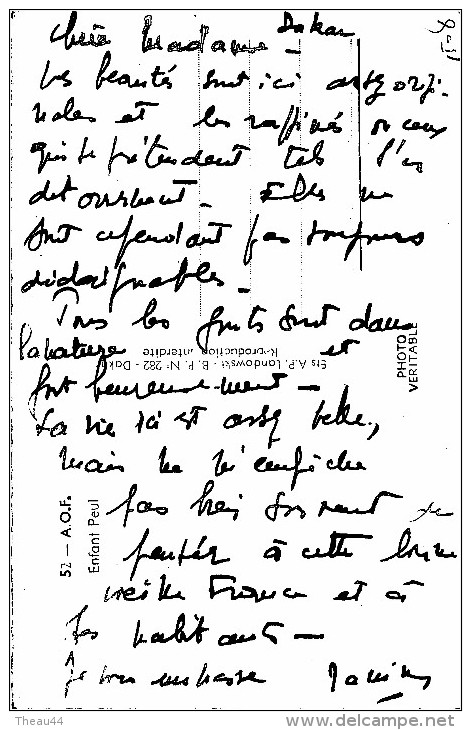 Dakar
Chère Madame -
Les beautés sont ici assez origi-
nales et les raffinés ou ceux
qui se prétendent tels s'en
détournent. Elles ne
sont cependant pas toujours
dédaignables -
Tous les goûts sont dans
la nature et
fort heureusement -
La vie ici est assez belle,
mais ne m'empêche
pas bien souvent de
penser à cette bonne
vieille France et à
ses habitants -
Je vous embrasse
Ets A.P. Landowski - B.P. Nº 282 - Dakar
Reproduction interdite
PHOTO
VERITABLE
52 — A.O.F.
Enfant Peul
Theau44
delcampe.net